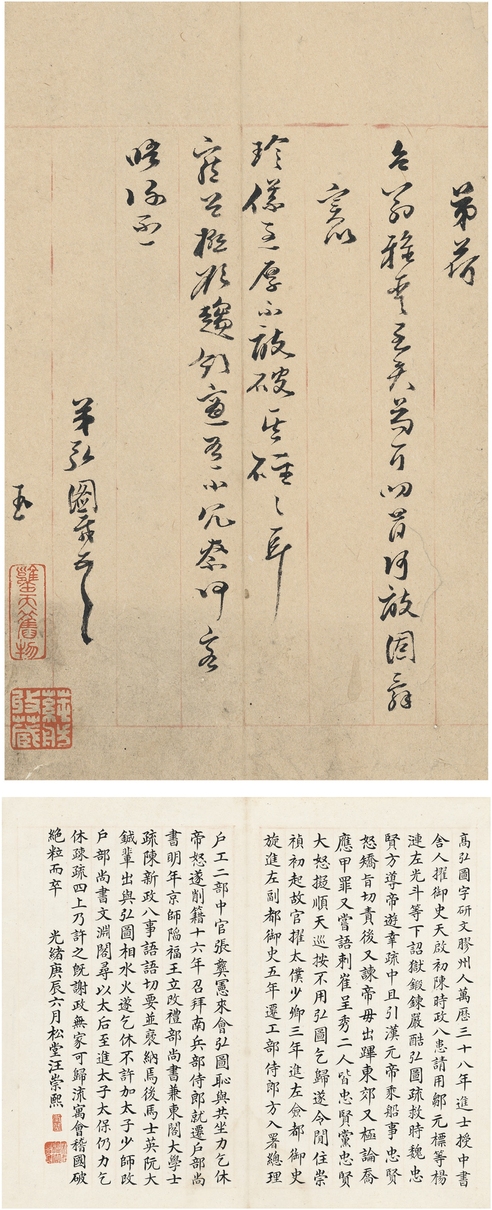 弟荷
台翁雅愛至矣
珍儀過厚不敢破其硜之耳
弟弘圖
玉
舊物
高弘圖字研文膠州人萬歷三十八年進士授中書
舍人擢御史天啟初陳時政八患請用鄒元標等楊
漣左光斗等下詔獄鍛鍊嚴酷弘圖疏救時魏忠
賢方導帝遊幸疏中且引漢元帝乘船事忠賢
怒矯旨切責後又諫帝毋出蹕東郊又極論喬
應甲罪又嘗語刺崔呈秀二人皆忠賢黨忠賢
大怒擬順天巡按不用弘圖乞歸遂令閒住崇
禎初起故官擢太僕少卿三年進左僉都御史
旋進左副都御史五年遷工部侍郎方入署總理
戶工二部中官張彝憲來會弘圖恥與共坐力乞休
帝怒遂削籍十六年召拜南兵部侍郎就遷戶部尚
書明年京師陷福王立改禮部尚書兼東閣大學士
疏陳新政八事語語切要並褒納焉後馬士英阮大
鋮輩出與弘圖相水火遂乞休不許加太子少師改
戶部尚書文淵閣尋以太后至進太子太保仍力乞
休疏疏四上乃許之既謝政無家可歸流寓會稽國破
絕粒而卒 光緒庚辰六月松堂汪崇熙